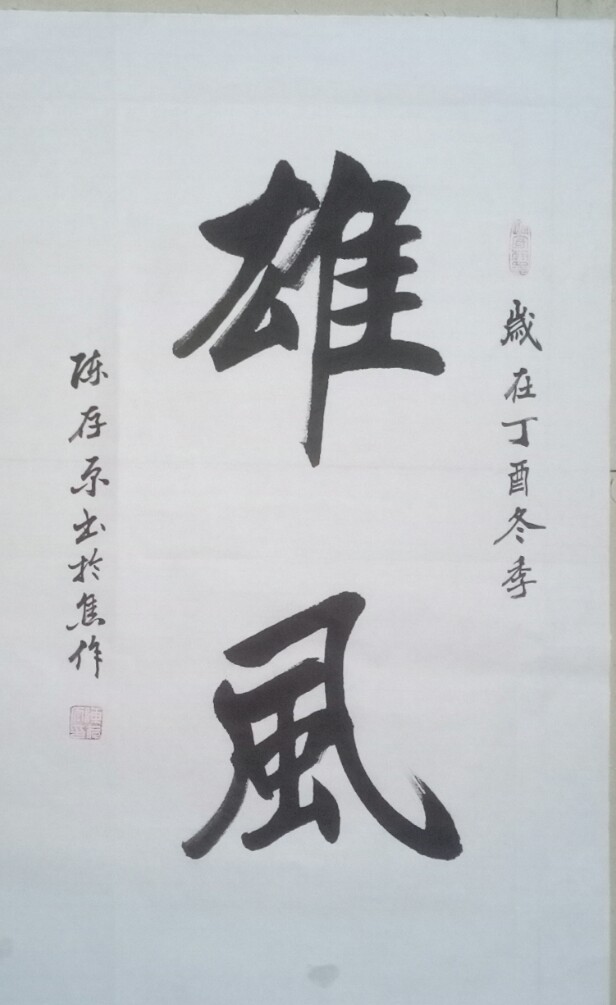 歲在丁酉冬季
雄風
陈存原书於焦作